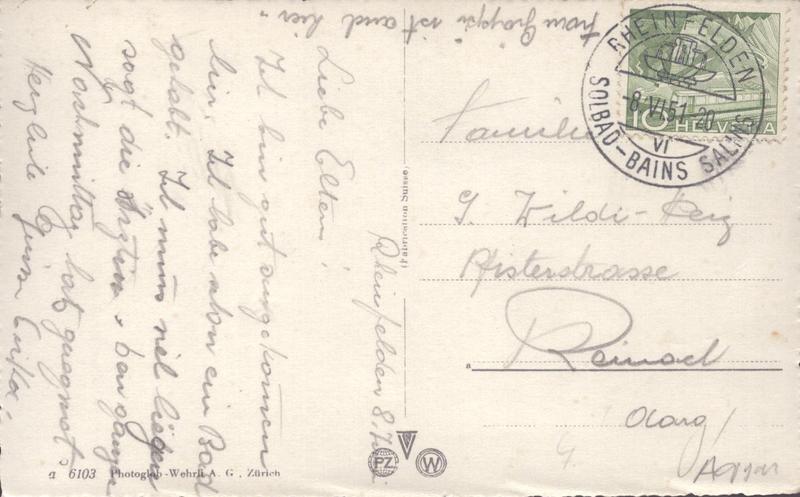 Rheinfelden 8. Juni
Liebe Eltern!
Ich bin gut angekommen
hier. Ich habe schon ein Bad
gehabt. Ich muss viel liegen
sagt die Ärztin. Den ganzen
Nachmittag hat geregnet.
Herzliche Grüsse Erika
Frau Groppi ist auch hier.
Fabrication Suisse.
RHEINFELDEN
-8.VI.51.-20
VI
SOLBAD-BAINS SALINS
10 HELVETIA
Familie
G. Wildi-Heiz
Pfisterstrasse
a Reinach
Aarg/
PZ W
a 6103 Photoglob-Wehrli A. G., Zürich